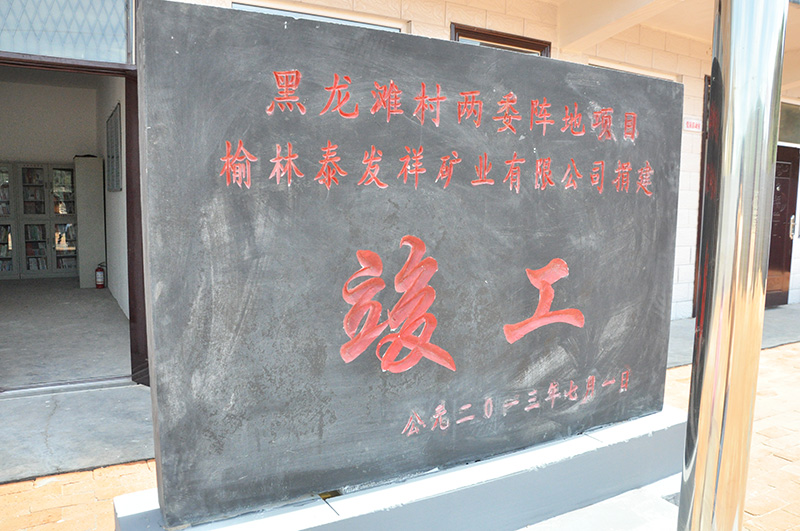 黑龙滩村两委阵地项目
榆林泰发祥矿业有限公司捐建
竣工
公元二0一三年七月一日